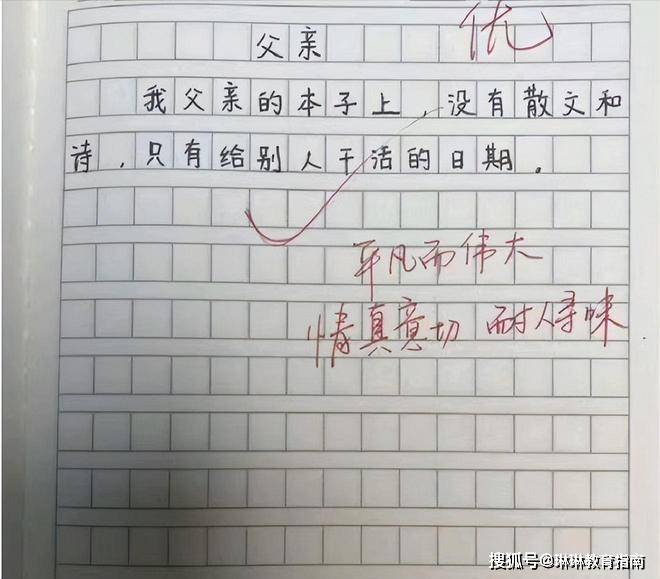 父亲 优
我父亲的本子上，没有散文和
诗，只有给别人干活的日期。
平凡而伟大
情真意切 耐人寻味
搜狐号@琳琳教育指南